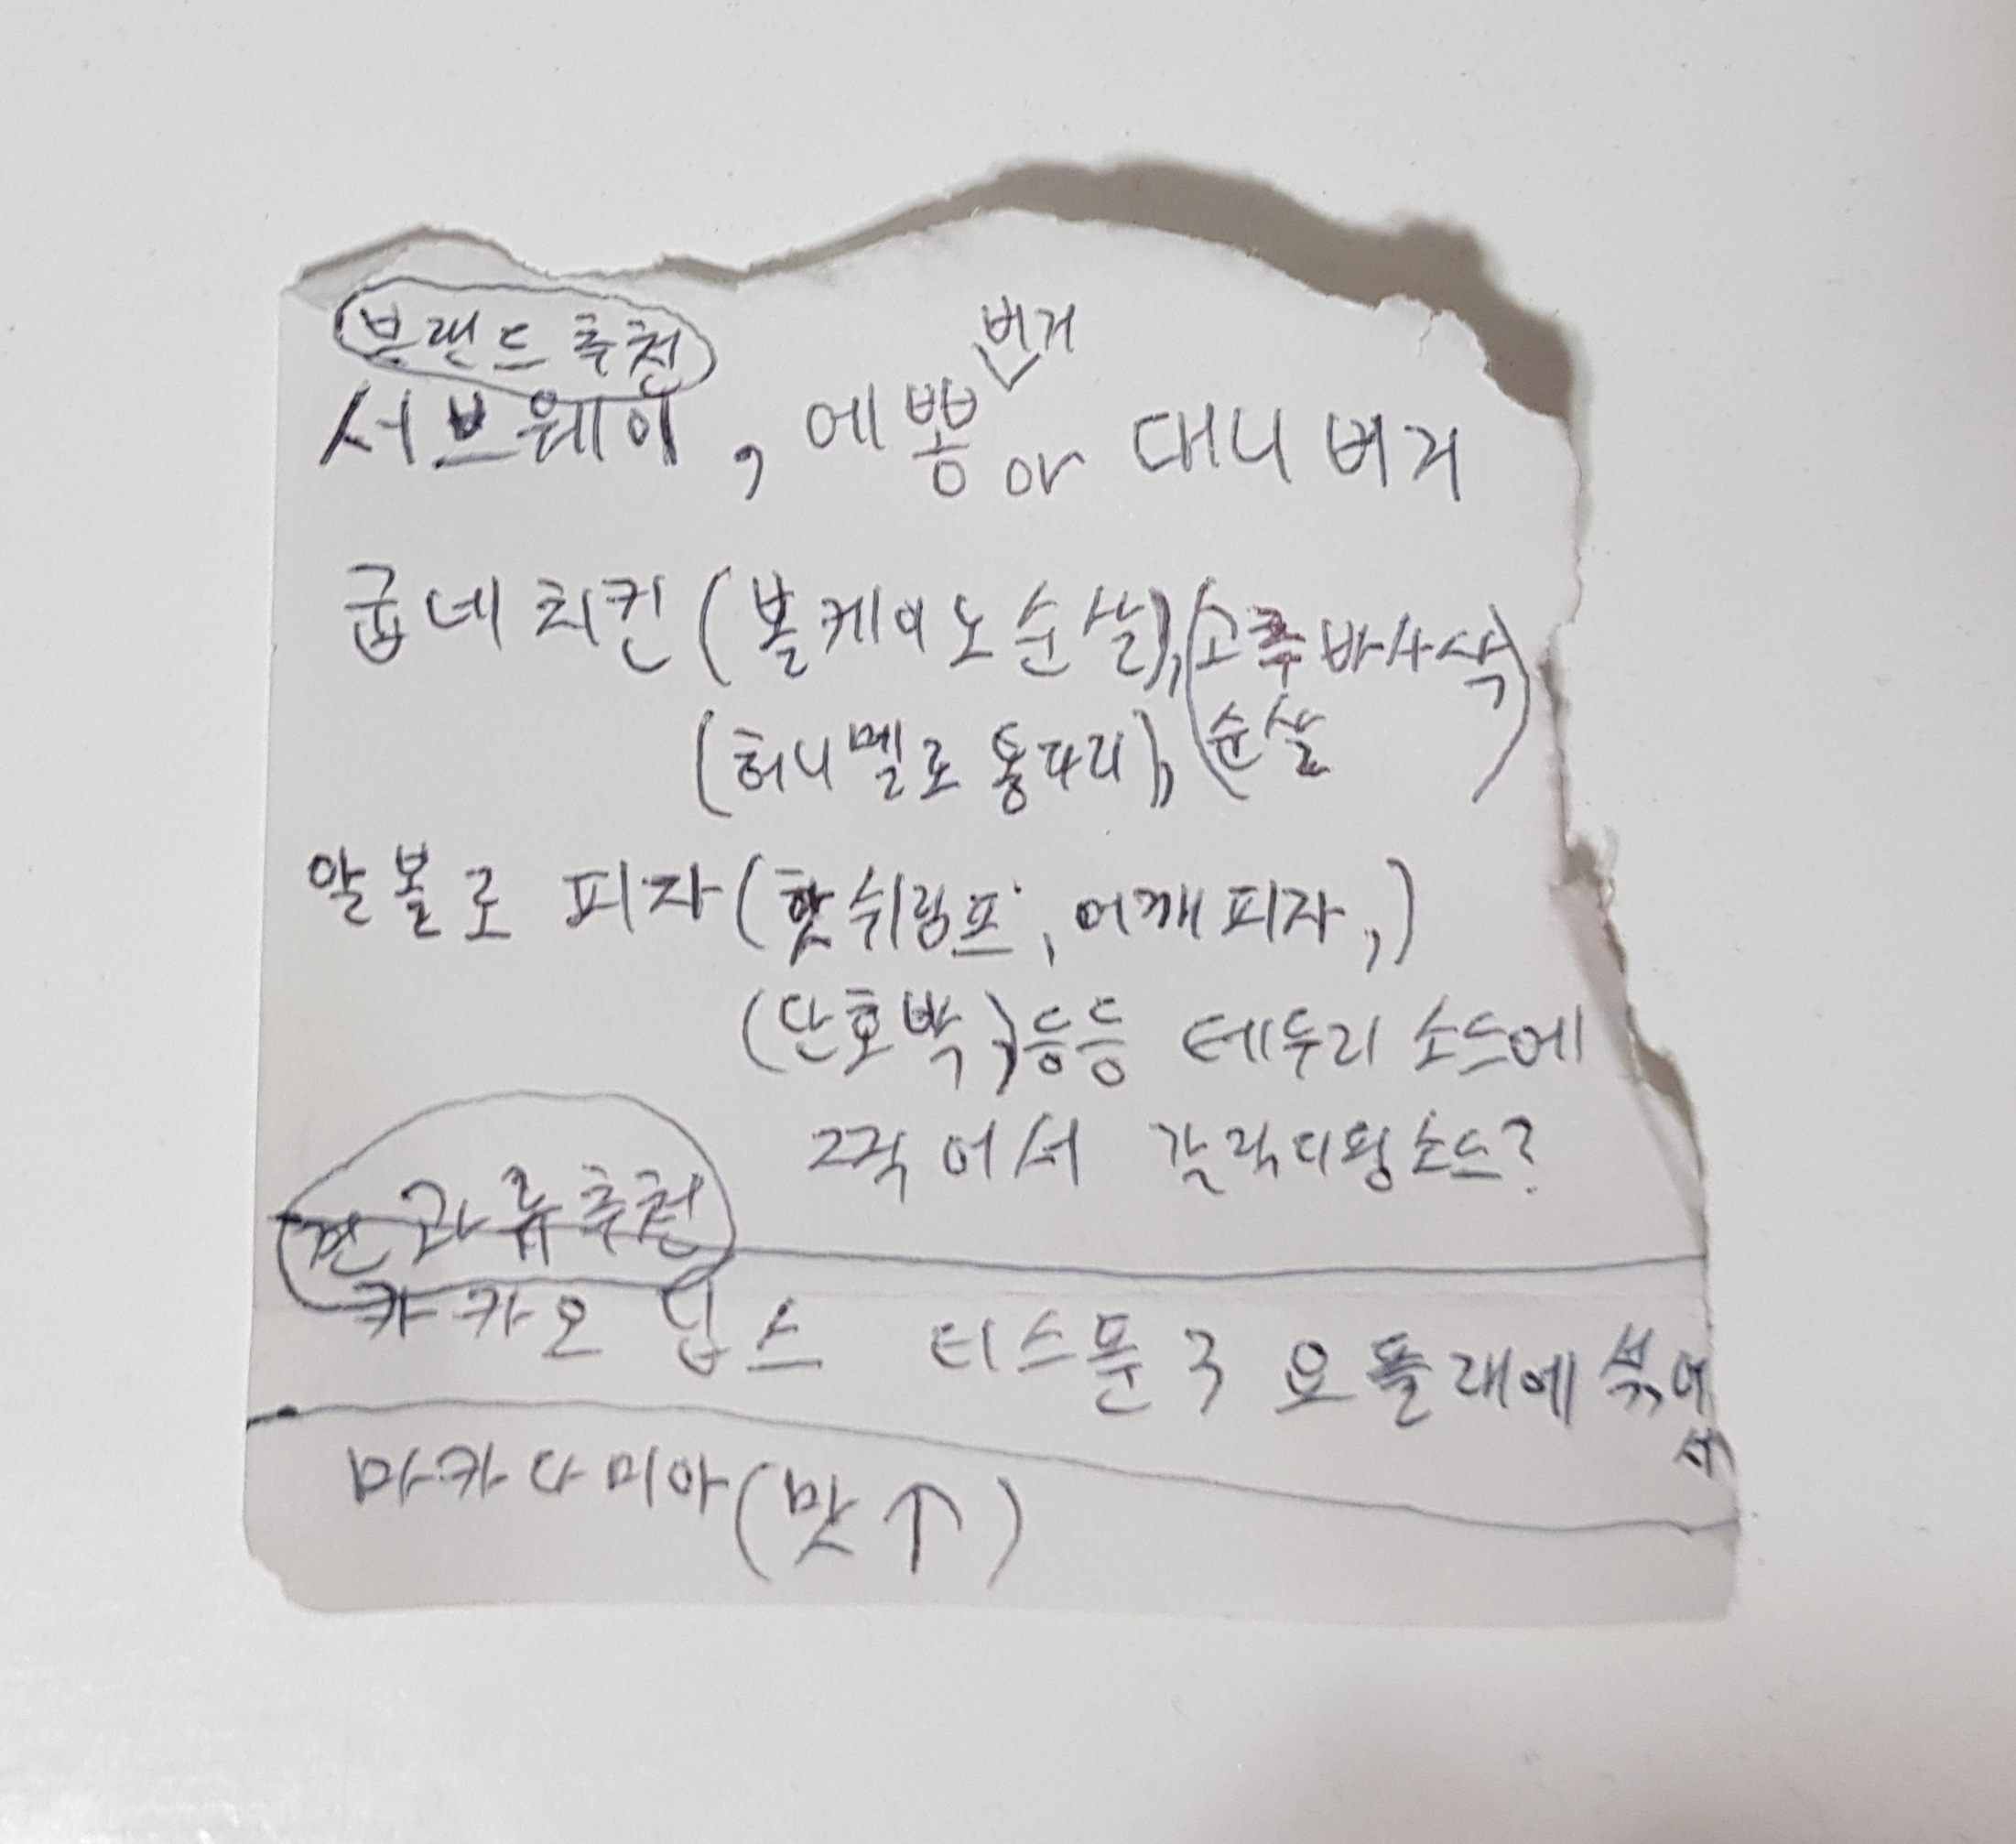 브랜드 추천
버거
서브웨이, 에뽕아 대니 버거
굽네 치킨 (볼케이노 순살), (고추바사삭
(허니멜로 통다리), 순살)
알볼로 피자 (핫쉬림프, 어깨피자,)
(단호박,) 등등 테두리 소스에
찍어서 갈릭디핑소스?
견과류추천
카카오 닙스 티스푼 3 요플래에 섞어
서
마카다미아 (맛 ↑)